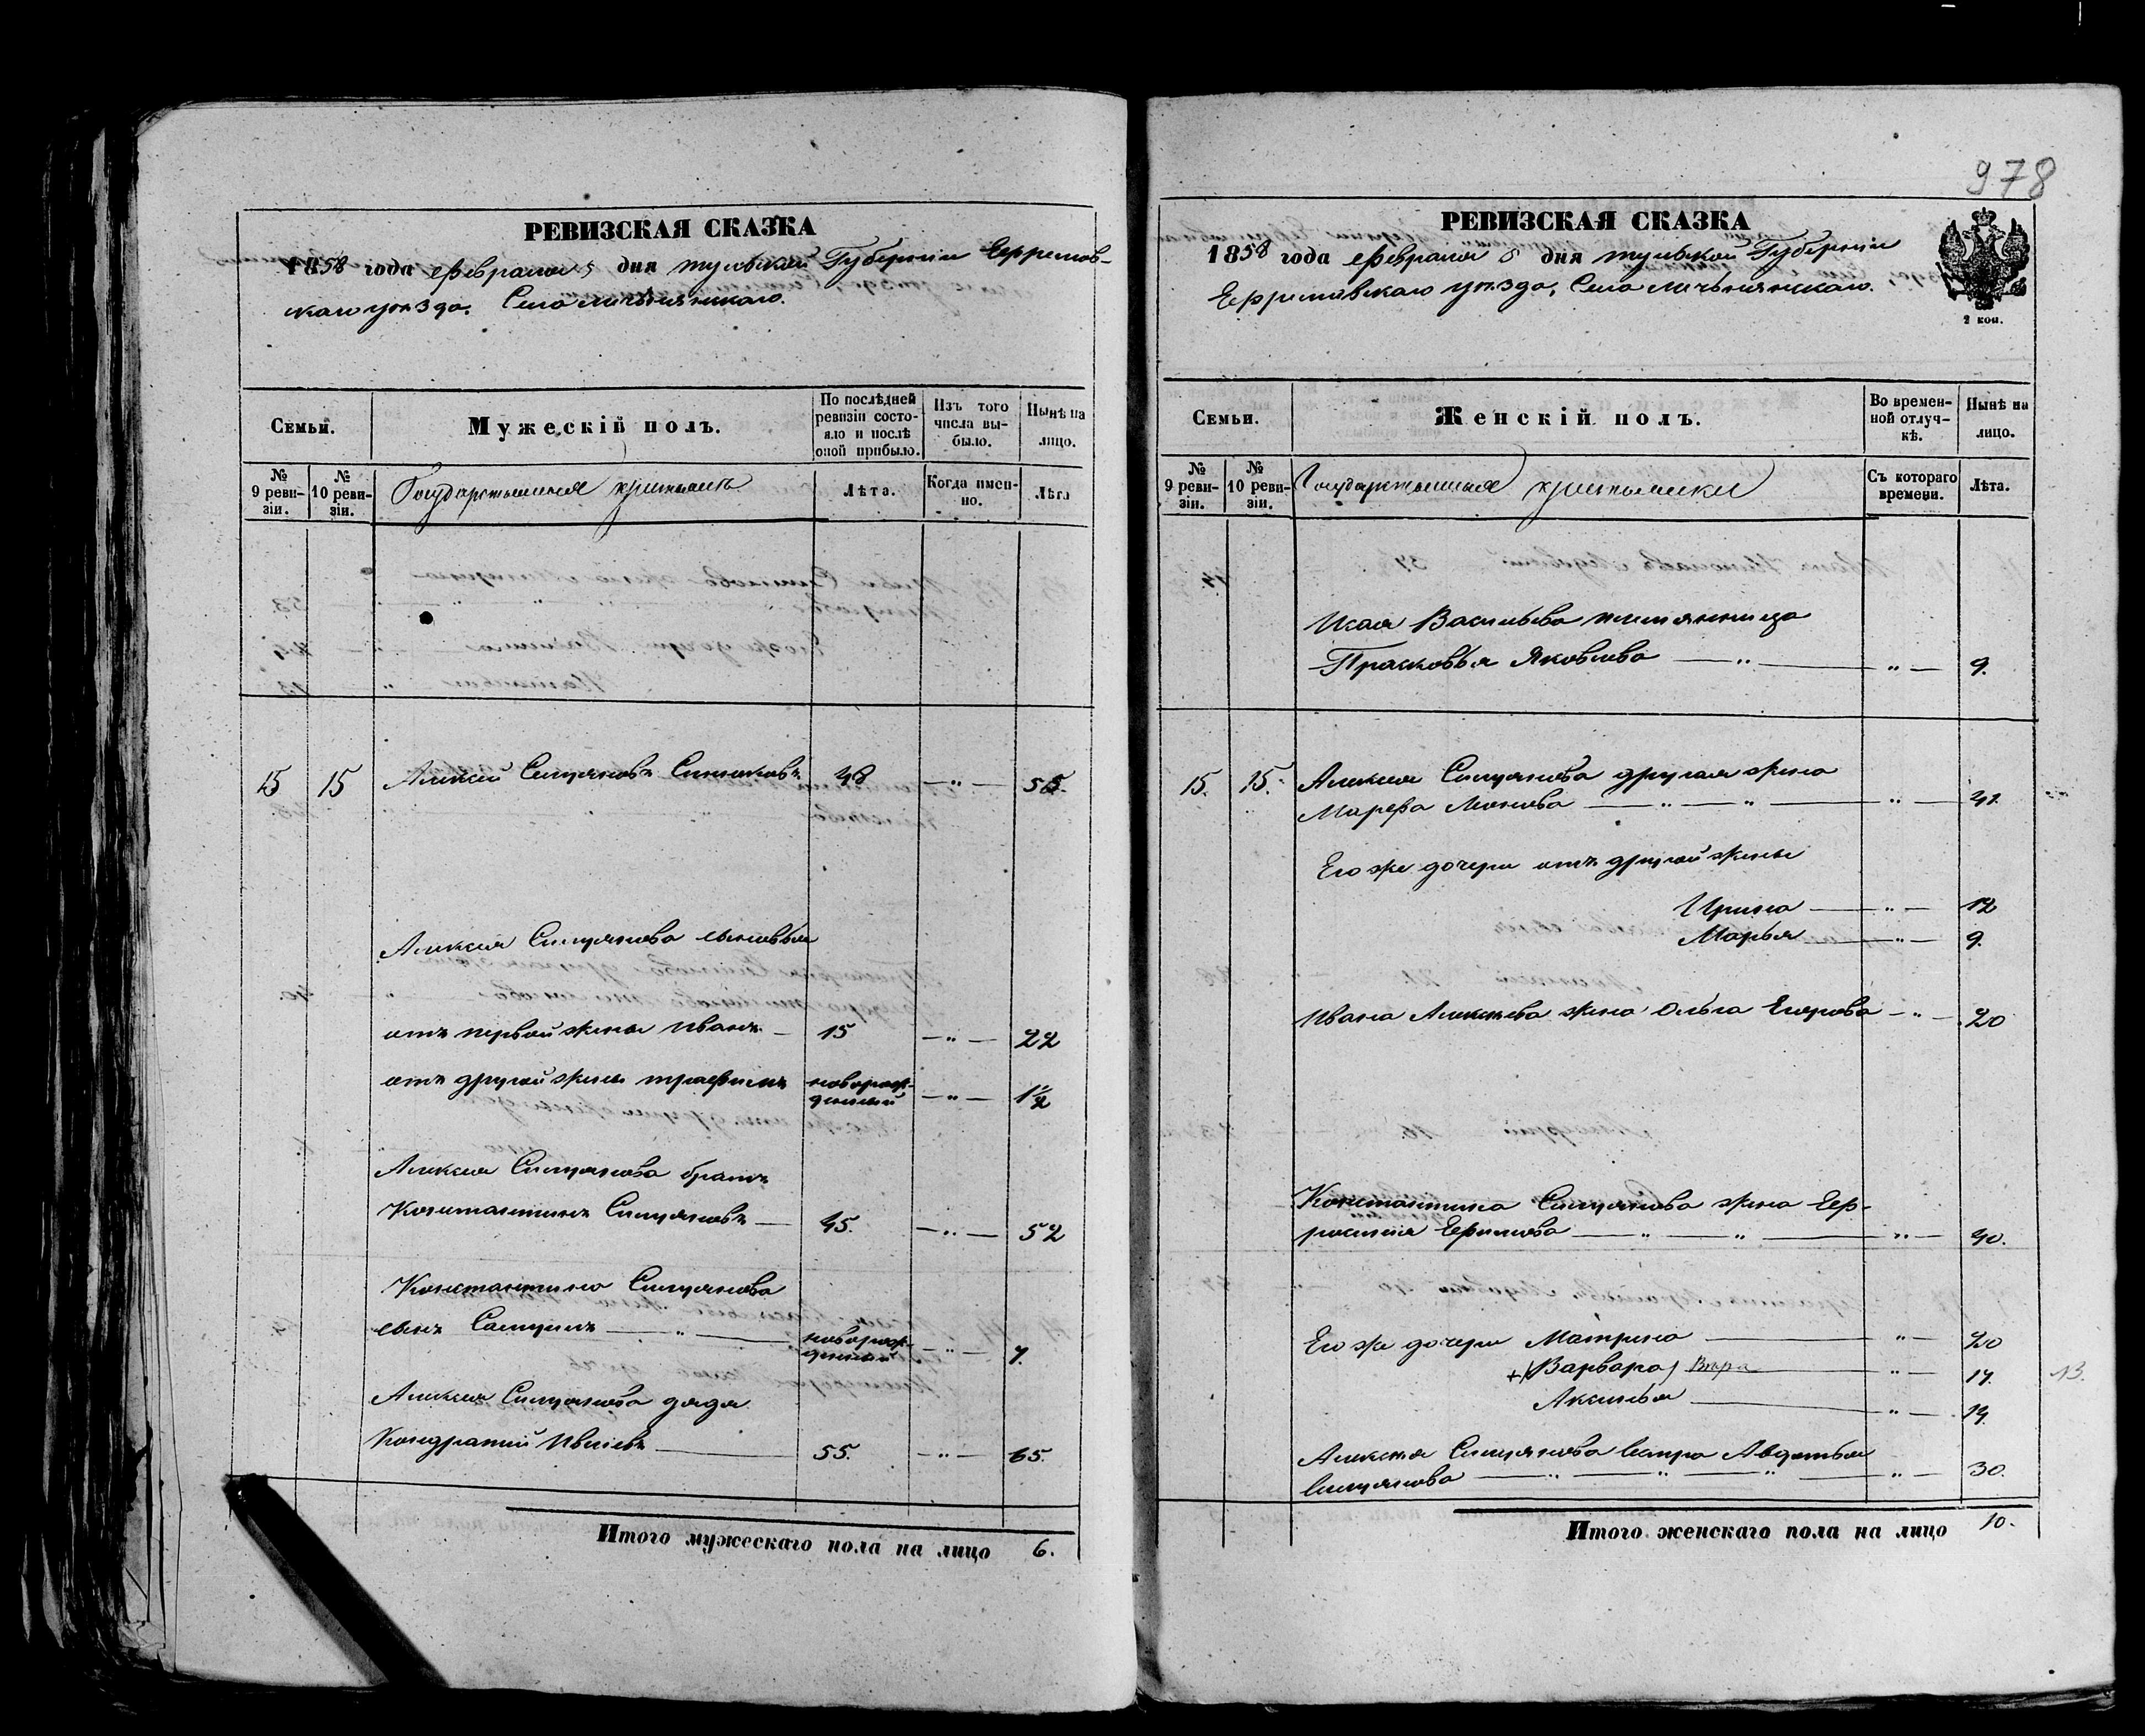 978
РЕВИЗСКАЯ СКАЗКА
1858 года февраля 5 дня тульской Губернии Ефремов-
скаго уѣзда. Села
Семьи.
Мужескій полъ.
По послѣдней ревизіи состо-яло и послѣ оной прибыло.
Изъ того числа вы-было.
Нынѣ на лицо.
№ 9 реви-зіи.
№ 10 реви-зіи.
Государственные крестьяне
Лѣта.
Когда имен-но.
Лѣта
15 15 Алексѣй Симановъ 48 — " — 55.
Алексея Симанова сыновья
отъ первой жены Иванъ — 15 — " — 22
отъ другой жены трофимъ новорож-денный — " — 1½
Алексея Симанова братъ
Константинъ Симановъ — 45. — " — 52
Константина Симанова
сынъ — " — новорож-денный — " — 7.
Алексея Симанова дядя
Кондратий 55. — " — 65.
Итого мужескаго пола на лицо 6.
РЕВИЗСКАЯ СКАЗКА
1858 года февраля 5 дня тульской Губерніи
Ефремовскаго уѣзда, Села
2 коп.
Семьи.
Женскій полъ.
Во времен-ной отлуч-кѣ.
Нынѣ на лицо.
№ 9 реви-зіи.
№ 10 реви-зіи.
Государственные крестьянки
Съ котораго времени.
Лѣта.
Васильева племянница
Прасковья Яковлева — " — " — 9.
15. 15. Алексея Симанова другая жена
Марфа — " — " — " —
Его же дочери отъ другой жены
Ирина — " — 12
Марья — " — 9.
Ивана Алексѣева жена Ольга Егорова — " — 20
Константина Симанова жена Еф-
росинья Ефимова — " — " — " — 40.
Его же дочери Матрина — " — 20
+(Варвара) Вѣра — " — 17. 13.
Аксинья — " — 14.
Алексея Симанова сестра Авдотья
Симанова — " — " — " — " — 30.
Итого женскаго пола на лицо 10.